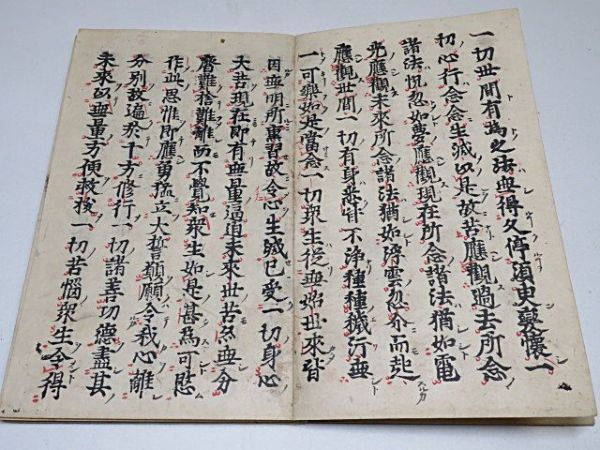 一切世間有為之法無得久停須臾變懷一
切心行念念生滅以是故苦應觀過去所念
諸法恍忽如夢應觀現在所念諸法猶如電
光應觀未來所念諸法猶如浮雲忽尒而起
應觀世間一切有身悉皆不淨種種穢行無
一可樂如是當念一切衆生從無始世來皆
因無明所熏習故令心生滅已受一切身心
大苦現在即有無量逼迫未來世苦亦無分
齊難捨難離而不覺知衆生如是甚為可愍
作此思惟即應勇猛立大誓願願令我心離
分別故遍於十方修行一切諸善功德盡其
未來以無量方便救拔一切苦惱衆生令得